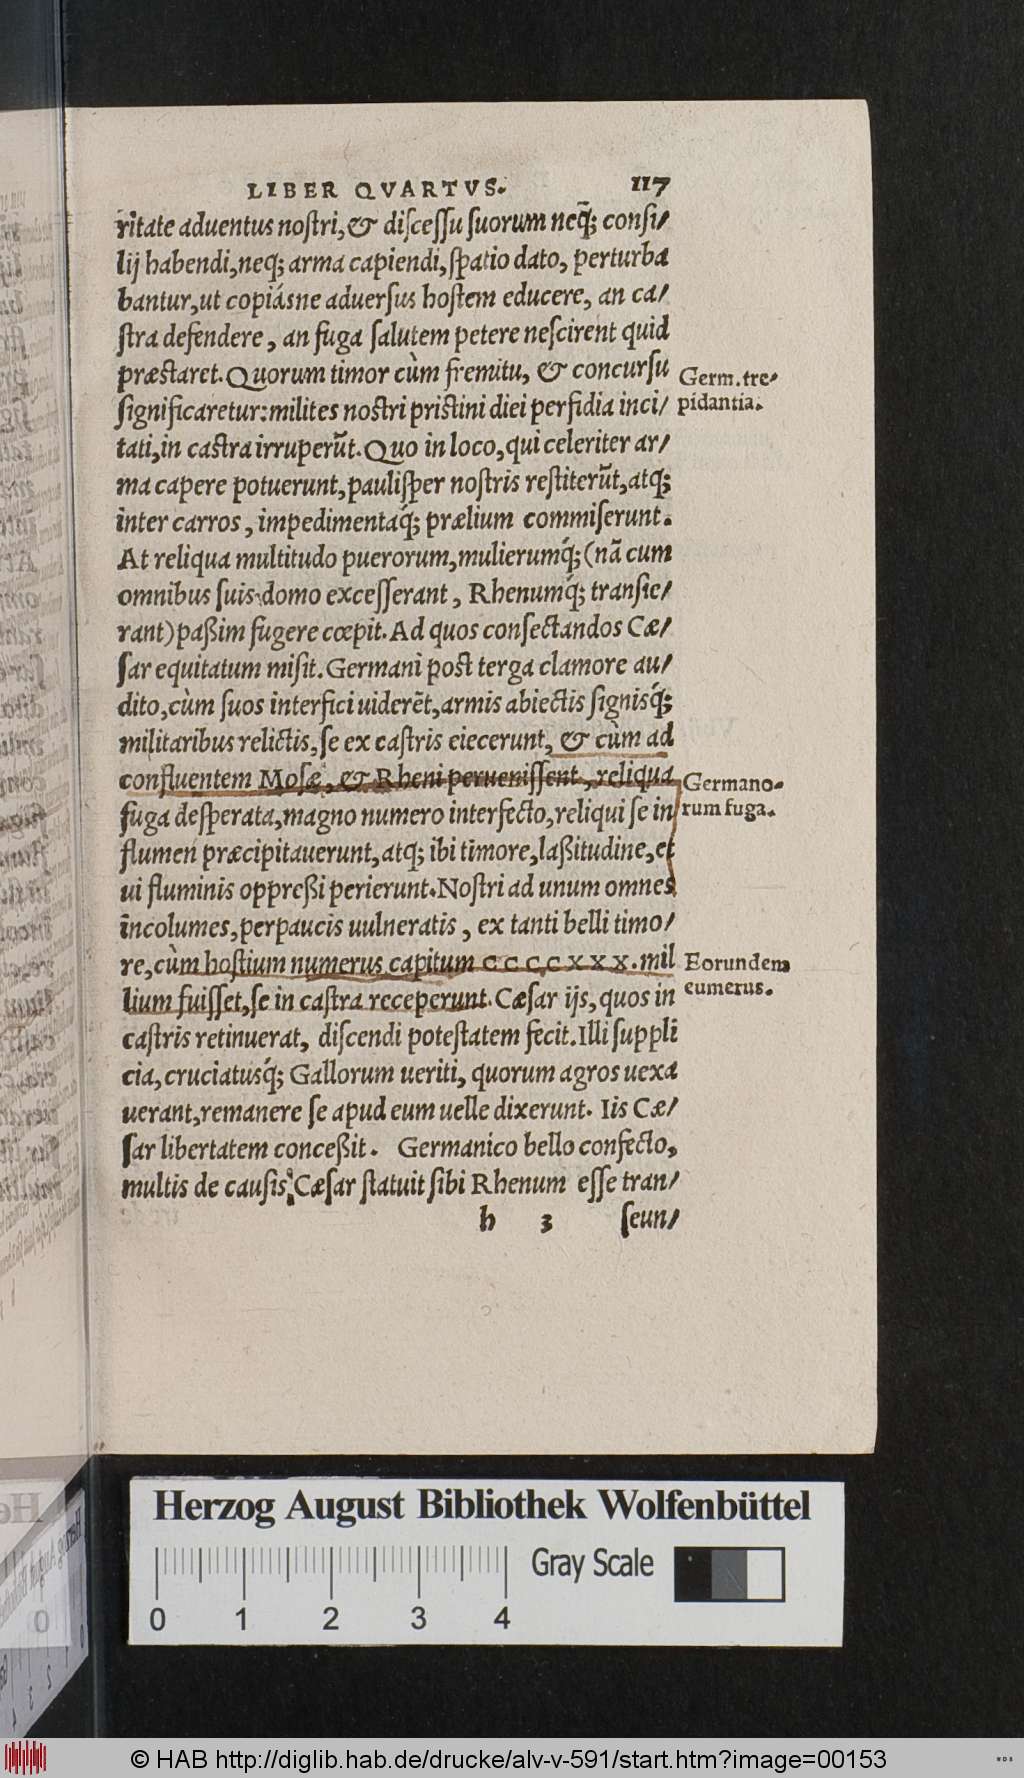 LIBER QVARTVS. 117
ritate aduentus nostri, & discessu suorum neq̃; consi/
lij habendi, neq; arma capiendi, spatio dato, perturba
bantur, ut copiásne aduersus hostem educere, an ca/
stra defendere, an fuga salutem petere nescirent quid
præstaret. Quorum timor cùm fremitu, & concursu
Germ. tre-
significaretur: milites nostri pristini diei perfidia inci/
pidantia.
tati, in castra irruperũt. Quo in loco, qui celeriter ar/
ma capere potuerunt, paulisper nostris restiterũt, atq;
inter carros, impedimentaq́; prælium commiserunt.
At reliqua multitudo puerorum, mulierumq́; (nã cum
omnibus suis domo excesserant, Rhenumq́; transie/
rant) paßim fugere cœpit. Ad quos consectandos Cæ/
sar equitatum misit. Germani post terga clamore au/
dito, cùm suos interfici uiderẽt, armis abiectis signisq́;
militaribus relictis, se ex castris eiecerunt, & cùm ad
confluentem Mosæ, & Rheni peruenissent, reliqua
Germano-
fuga desperata, magno numero interfecto, reliqui se in
rum fuga.
flumen præcipitauerunt, atq; ibi timore, laßitudine, et
ui fluminis oppreßi perierunt. Nostri ad unum omnes
incolumes, perpaucis uulneratis, ex tanti belli timo/
re, cùm hostium numerus capitum CCCCXXX. mil
Eorundem
lium fuisset, se in castra receperunt. Cæsar ijs, quos in
eumerus.
castris retinuerat, discendi potestatem fecit. Illi suppli
cia, cruciatusq́; Gallorum ueriti, quorum agros uexa
uerant, remanere se apud eum uelle dixerunt. Iis Cæ/
sar libertatem conceßit. Germanico bello confecto,
multis de causis, Cæsar statuit sibi Rhenum esse tran/
h 3 seun/
Herzog August Bibliothek Wolfenbüttel
Gray Scale
0 1 2 3 4
© HAB http://diglib.hab.de/drucke/alv-v-591/start.htm?image=00153